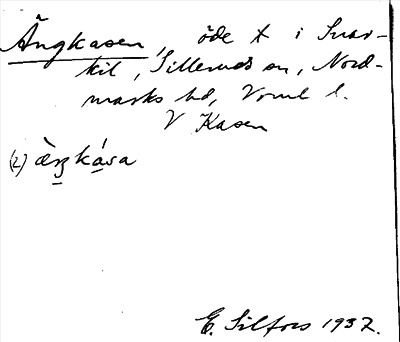 Ängkasen, öde t i Svar-
kil, Sillerud sn, Nord-
marks hd, Vrml l.
V Kasen
(2) æ̀ŋkása
E. Silfors 1937.